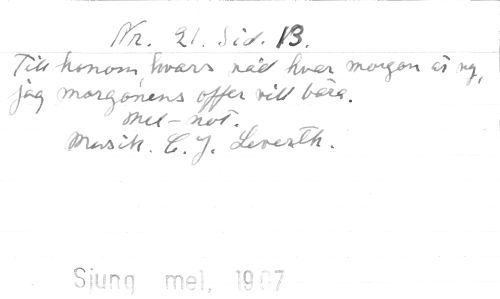 Nr. 21. Sid. 13.
Till honom, hvars nåd hvar morgon är ny,
jag morgonens offer vill bära.
Mel-not.
Musik. C. J. Leverth.
Sjung mel, 1907